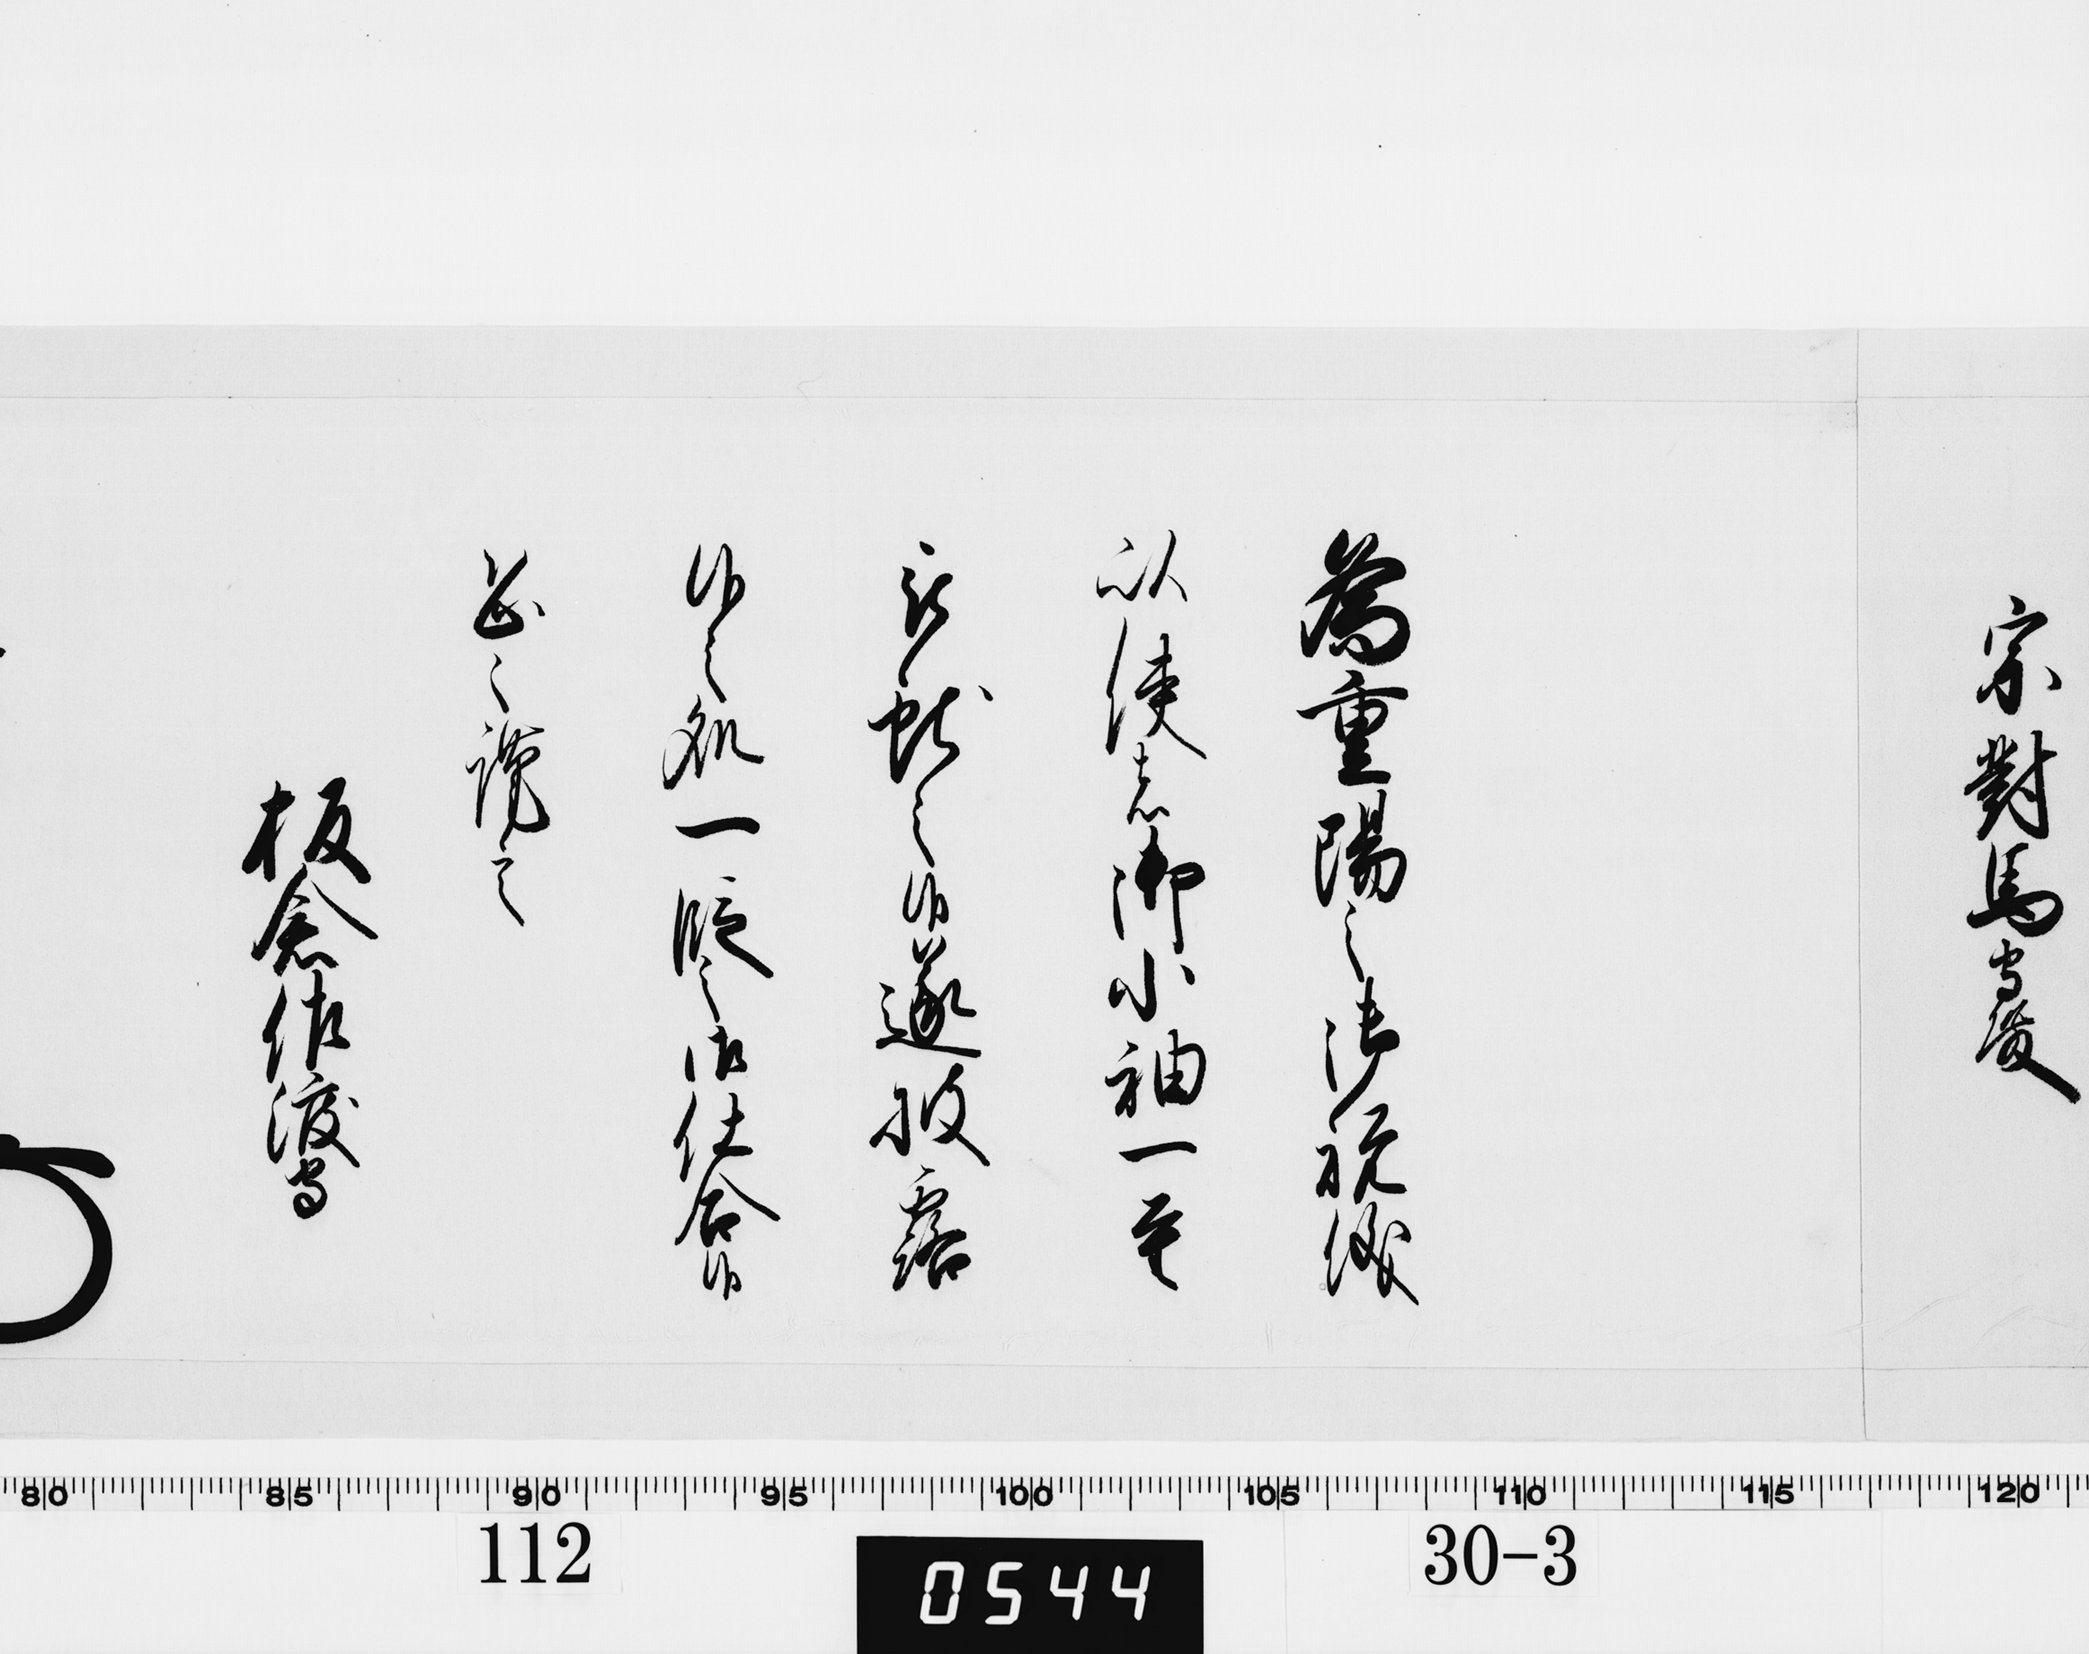 宗對馬守殿
為重陽之御祝儀
以使者御小袖一重
被献之候遂披露
候之処一段之御仕合候
恐々謹言
板倉佐渡守
80 85 90 95 100 105 110 115 120
112
0544
30-3